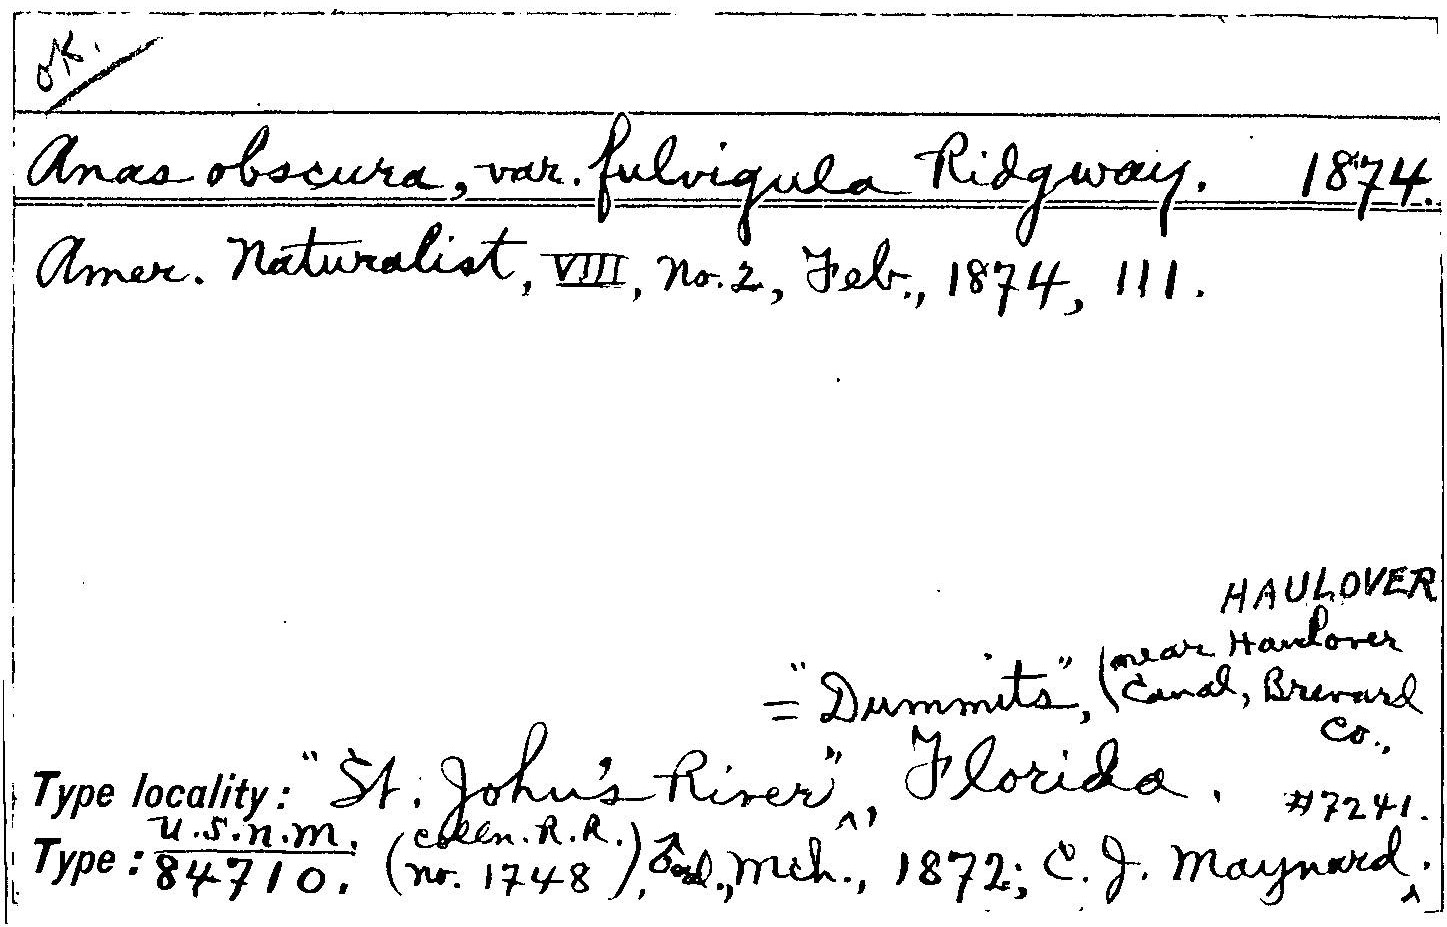 OK.
Anas obscura, var. fulvigula Ridgway. 1874.
Amer. Naturalist, VIII, No. 2, Feb., 1874, 111.
HAULOVER
= "Dummits", (near Haulover
Canal, Brevard
Co.,
Type locality: "St. John's River", Florida.
#7241.
Type: U.S.N.M. 84710. (Colln. R.R. No. 1748), ♂ad., Mch., 1872; C. J. Maynard.